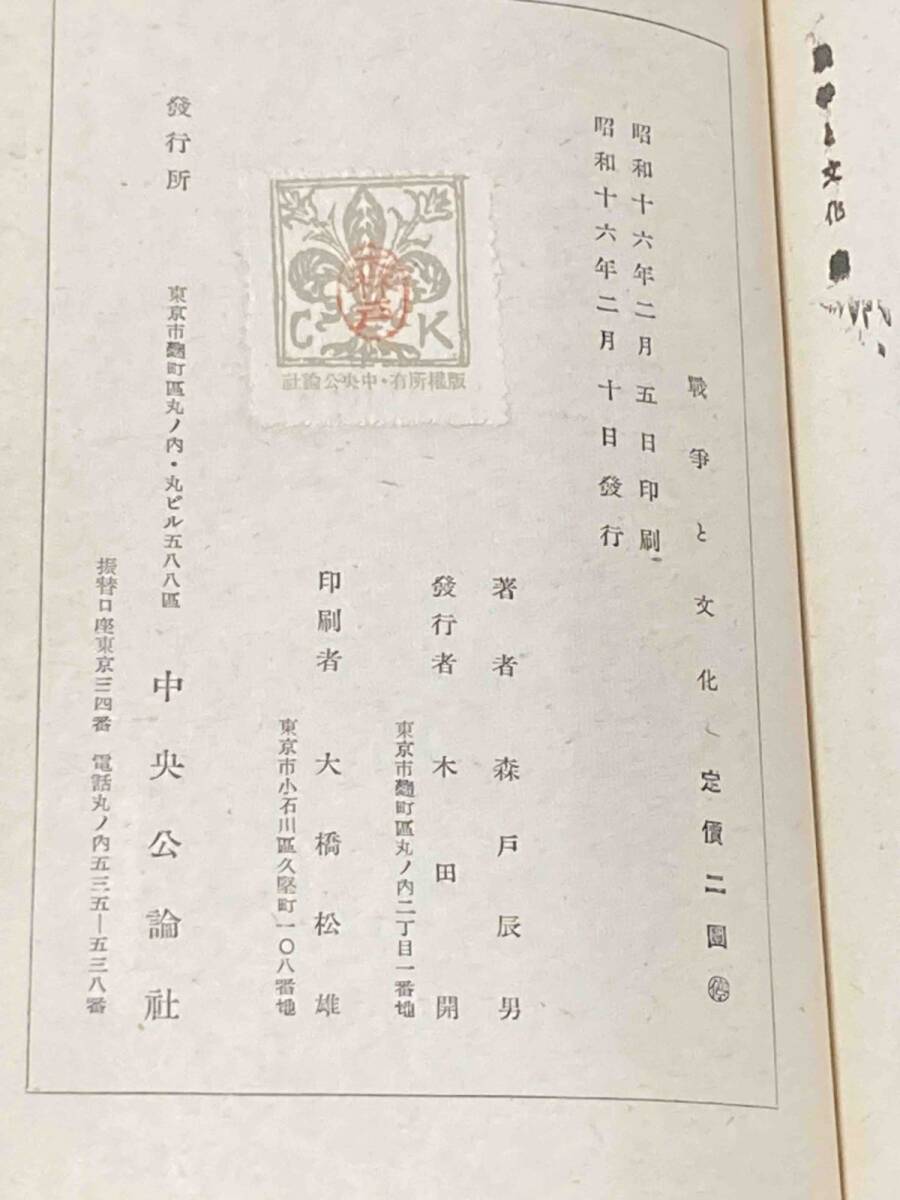 戰爭と文化
定價二圓 停
昭和十六年二月五日印刷
昭和十六年二月十日發行
著者 森戸辰男
發行者 木田開
東京市麴町區丸ノ內二丁目一番地
印刷者 大橋松雄
東京市小石川區久堅町一〇八番地
C K
森戸
社論公央中・有所權版
發行所 中央公論社
東京市麴町區丸ノ內・丸ビル五八八區
振替口座東京三四番 電話丸ノ內五三五一五三八番